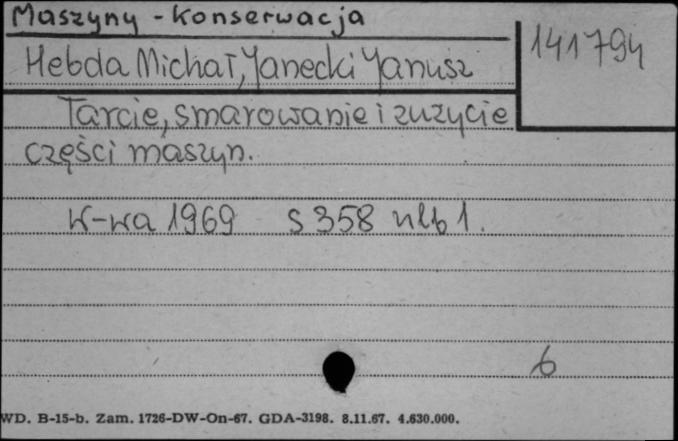 Maszyny - Konserwacja
141794
Hebda Michał, Janecki Janusz
Tarcie, smarowanie i zużycie
części maszyn.
W-wa 1969 s 358 nlb 1.
6
WD. B-15-b. Zam. 1726-DW-On-67. GDA-3198. 8.11.67. 4.630.000.